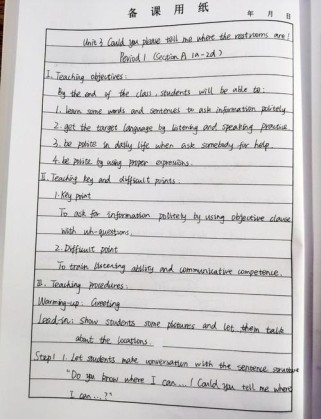 备 课 用 纸
年 月 日
Unit 3 Could you please tell me where the restrooms are?
Period 1 (Section A 1a-2d)
I. Teaching objectives:
By the end of the class, students will be able to:
1. learn some words and sentences to ask information politely
2. get the target language by listening and speaking practice
3. be polite in daily life when ask somebody for help.
4. be polite by using proper expressions.
II. Teaching key and difficult points:
1. Key point
To ask for information politely by using objective clause
with wh-questions.
2. Difficult point
To train listening ability and communicative competence.
III. Teaching procedures:
Warming-up: Greeting
Lead-in: Show students some pictures and let them talk
about the locations.
Step 1 1. Let students make conversation with the sentence structure
"Do you know where I can...? Could you tell me where
I can...?"